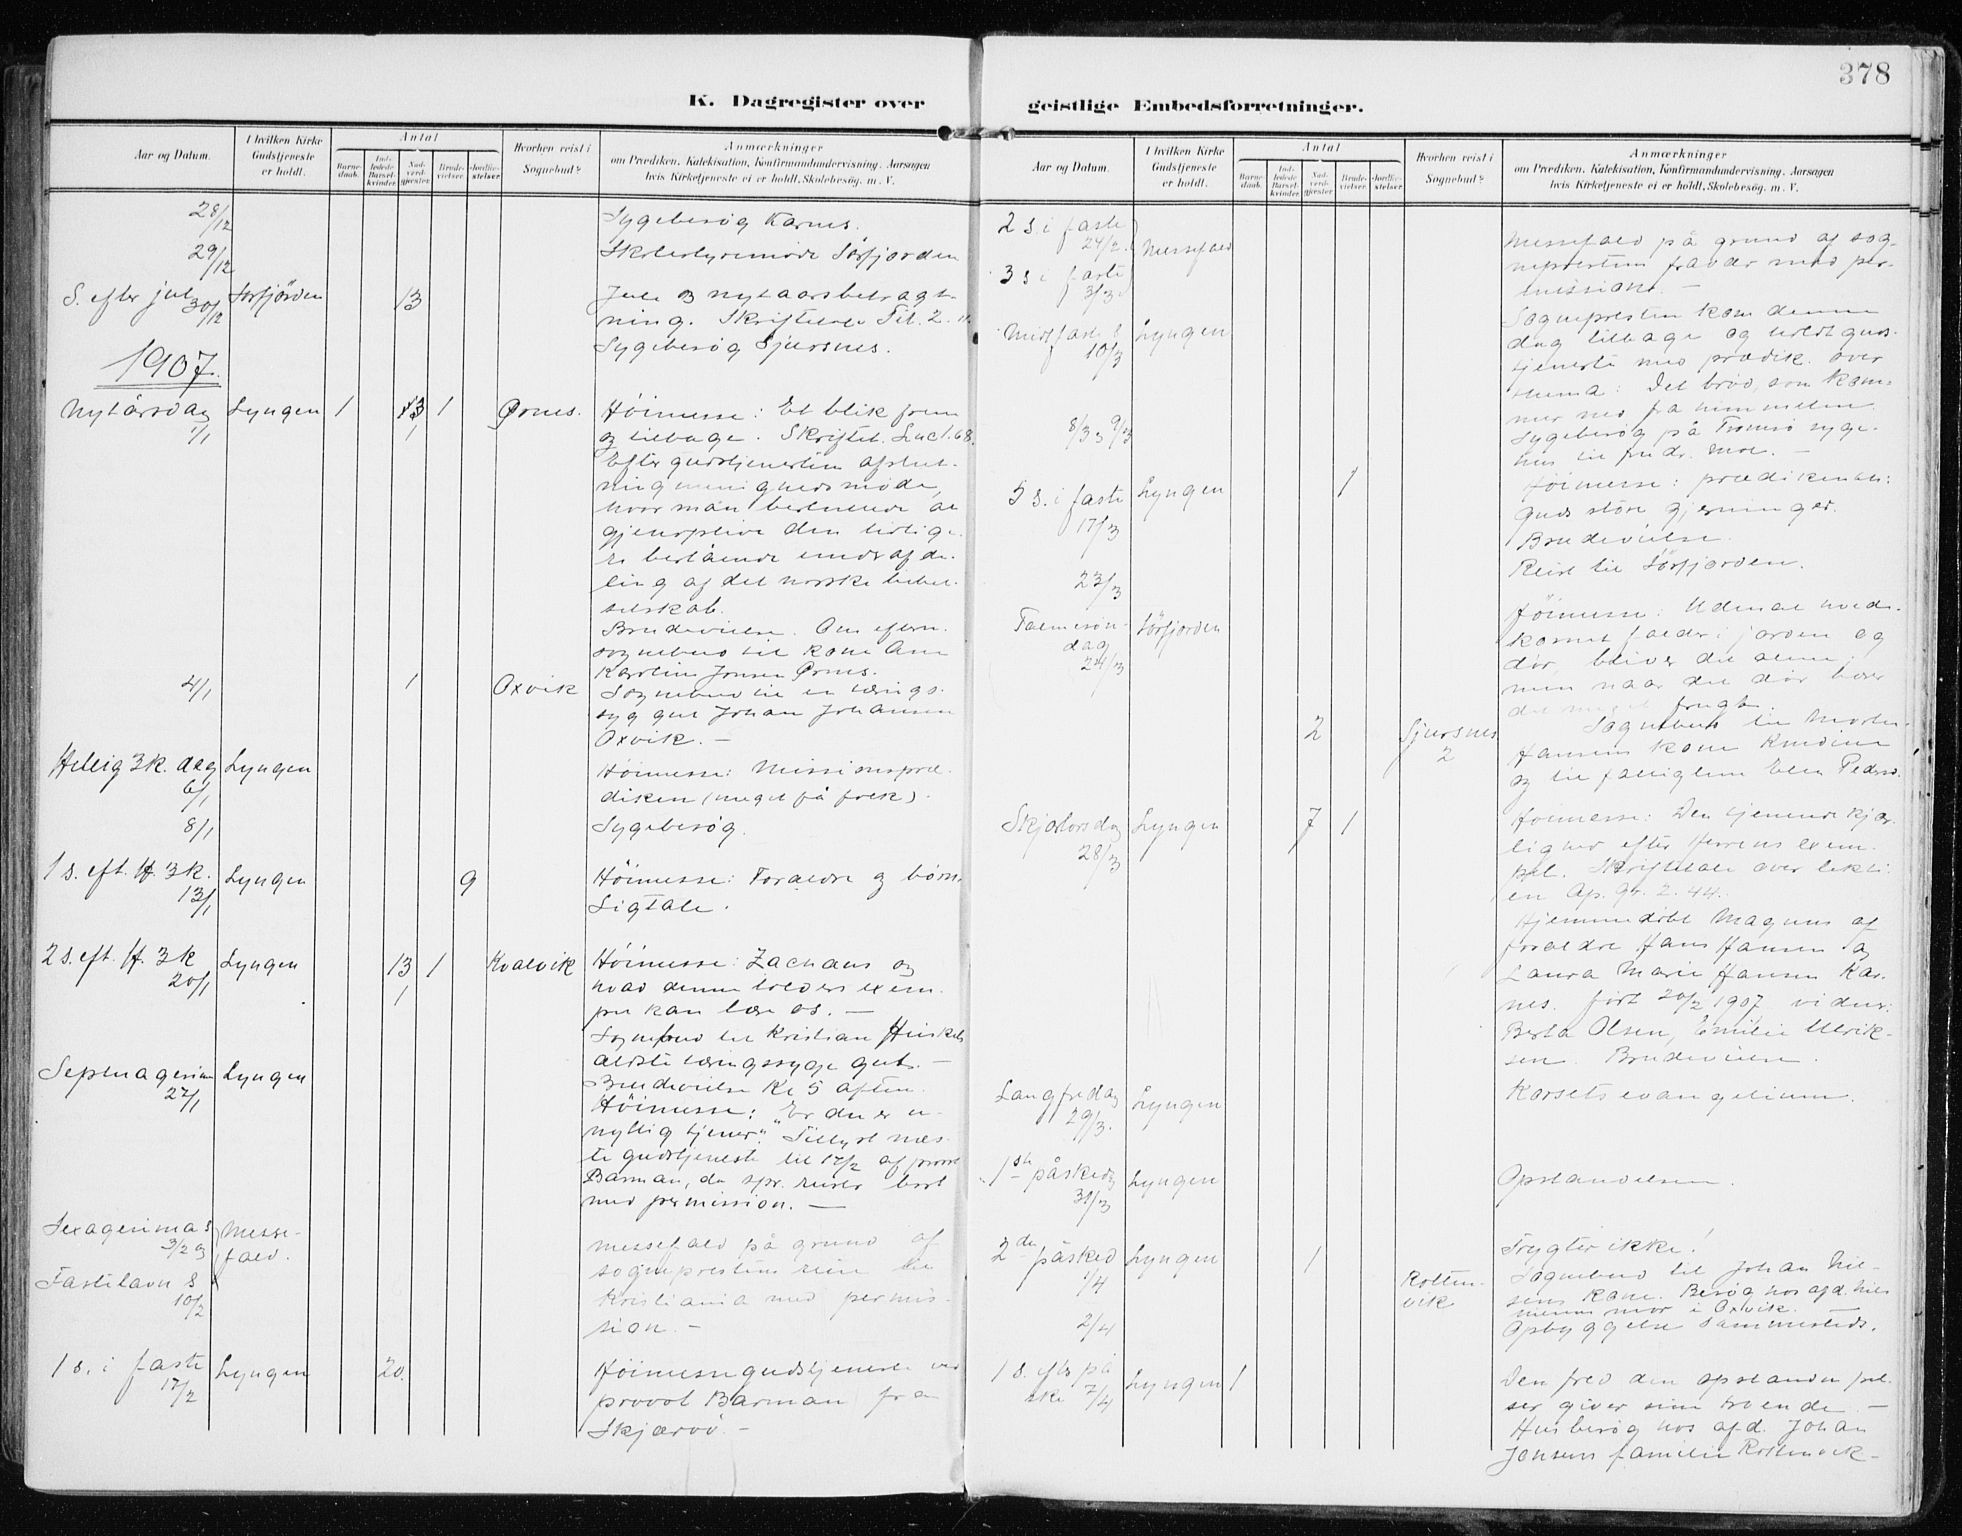 378
K. Dagregister over
geistlige Embedsforretninger.
Aar og Datum.
I hvilken Kirke Gudstjeneste er holdt.
Antal
Barnedaab.
Indledede Barselkvinder.
Nadverdgjester.
Brudevielser.
Jordfæstelser.
Hvorhen reist i Sognebud?
Anmærkninger
om Prædiken, Katekisation, Konfirmandundervisning. Aarsagen
hvis Kirketjeneste ei er holdt, Skolebesøg. m. V.
28/12
Sygebesøg Karnes.
29/12
Skolestyremøde Sørfjorden
S. efter jul Sørfjorden 13
30/12
Jule og nytaarsbetragt-
ning. Skriftetale Tit. 2. 11.
Sygebesøg Sjursnes.
1907.
Nytårsdag Lyngen 1 13 1 Ørnes.
1/1 1
Höimesse: Et blik frem
og tilbage. Skriftet. Luc 1. 68.
Efter gudstjenesten afslut-
ning menighedsmøde,
hvor man besluttede at
gjenoplive den tidlige-
re bestående underafde-
ling af det norske bibel-
selskab.
Brudevielse. Om efterm.
sognebud til kone Ane
Karoline Jonsen Ørnes.
4/1 1 Oxvik
Sognebud til en tærings-
syg gut Johan Johansen
Oxvik. —
Hellig 3 k. dag Lyngen
6/1
Höimesse: Missionspræ-
diken (meget få folk).
8/1
Sygebesøg.
1 s. eft. H. 3 k. Lyngen 9
13/1
Höimesse: Forældre og børn.
Ligtale.
2 s. eft. H. 3 k Lyngen 13 1 Kvalvik
20/1 1
Höimesse: Zachæus og
hvad denne tolders exem-
pel kan lære os. —
Sognebud til Kristian
ældste tæringssyge gut. —
Brudevielse kl 5 aften.
Septuagesima Lyngen
27/1
Höimesse: "Er du en u-
nyttig tjener". Tillyst næs-
te gudstjeneste til 17/2 af provst
Barman, da spr. reiser bort
med permission. —
Sexagesima s Messe-
3/2 og fald.
Fastelavns s
10/2
Messefald på grund af
sognepresten reise til
Kristiania med permis-
sion. —
1 s. i faste Lyngen 20.
17/2
Höimessegudstjeneste ved
provst Barman fra
Skjærvö. —
2 s. i faste
24/2. Messefald
3 s i faste
3/3.
Messefald på grund af sog-
neprestens fravær med per-
mission. —
Midtfaste s Lyngen
10/3
Sognepresten kom denne
dag tilbage og holdt guds-
tjeneste med prædik. over
thema: Det bröd, som kom-
mer ned fra himmelen
8/3 og 9/3
Sygebesøg på Tromsö syge-
hus til fredr. Moe. —
5 s. i faste Lyngen 1
17/3
Höimesse: prædiken om:
Guds store gjerninger.
Brudevielse.
23/3
Reist til Sørfjorden.
Palmesøn- Sørfjorden
dag
24/3
Höimesse: Uden at hvede-
kornet falder i jorden og
dør, bliver det alene,
men naar det dør bærer
det meget frugt.
2 Sjursnes
2
Sognebud til Morten
Hansens kone
og til fattiglem Elen Peders.
Skjærtorsdag Lyngen 7 1
28/3
Höimesse: Den tjenende kjær-
lighed efter Herrens exem-
pel. Skriftetale over lekti-
en Ap. Gr. 2. 44.
Hjemmedøbt Magnus af
forældre Hans Hansen og
Laura Marie Hansen Kar-
nes. født 20/2 1907 vidner:
Berta Olsen, Emilie Ulrik-
sen. Brudevielse.
Langfredag Lyngen
29/3.
Korsets evangelium.
1ste påskedag Lyngen
31/3
Opstandelsen.
2den påsked Lyngen 1
1/4
Frygter ikke!
Rotten-
vik
Sognebud til Johan Nil-
sens kone. Besøg hos afd. Nils
mor i Oxvik.
2/4
Opbyggelse sammesteds.
1 s. efter på- Lyngen 1
ske 7/4
Den fred den opstandne frel-
ser giver sine troende —
Husbesøg hos afd. Johan
Jonsens familie Rottenvik—